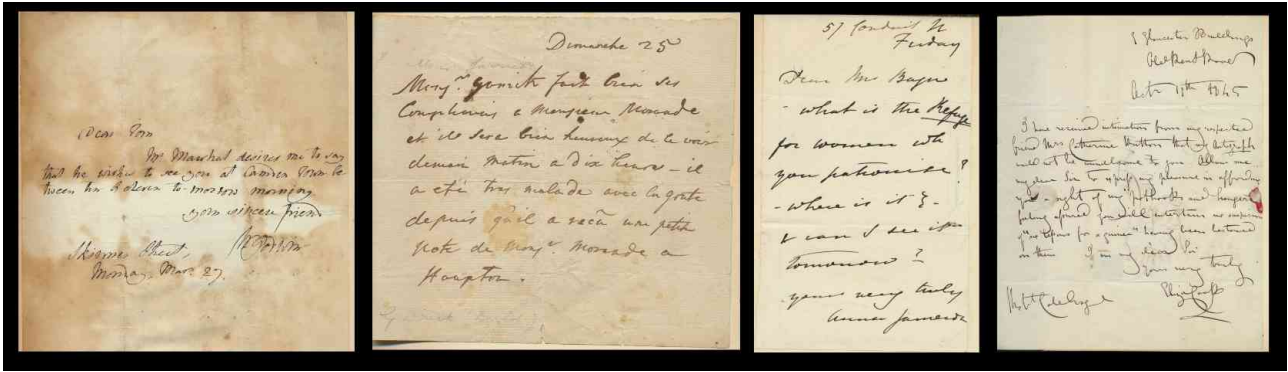 Dear Tom
Mr. Marshal desires me to say
that he wishes to see you at Camden Town be
tween ten & eleven to-morrow morning
your sincere friend
Skinner Street,
Monday, Mar. 27.
Dimanche 25
Monsr. fait bien ses
Complimens a Monsieur Monvade
et il sera bien heureux de le voir
demain matin a dix heure - il
a eté tres malade avec la goute
depuis qu'il a recu une petite
Note de Monsr. a
Hampton.
57 Conduit St
Friday
Dear Mrs
- what is the Refuge
for women wh
you patronise?
- where is it? -
& can I see it
tomorrow?
yours very truly
Anna Jameson
Gloucester Buildings
Old Kent Road
Octr 19th 1845
I have received intimation from my respected
friend Mrs. Catherine that my Autograph
will not be unwelcome to you Allow me
my dear Sir to express my pleasure in affording
you a sight of my Pothooks and hangers
feeling assured you will entertain no suspicion
of "a guinea" having been
on them I am my dear Sir
Yours very truly
Eliza Cook